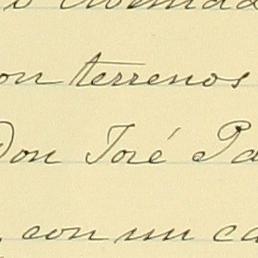 on terrenos
Don José Pa
con un ca